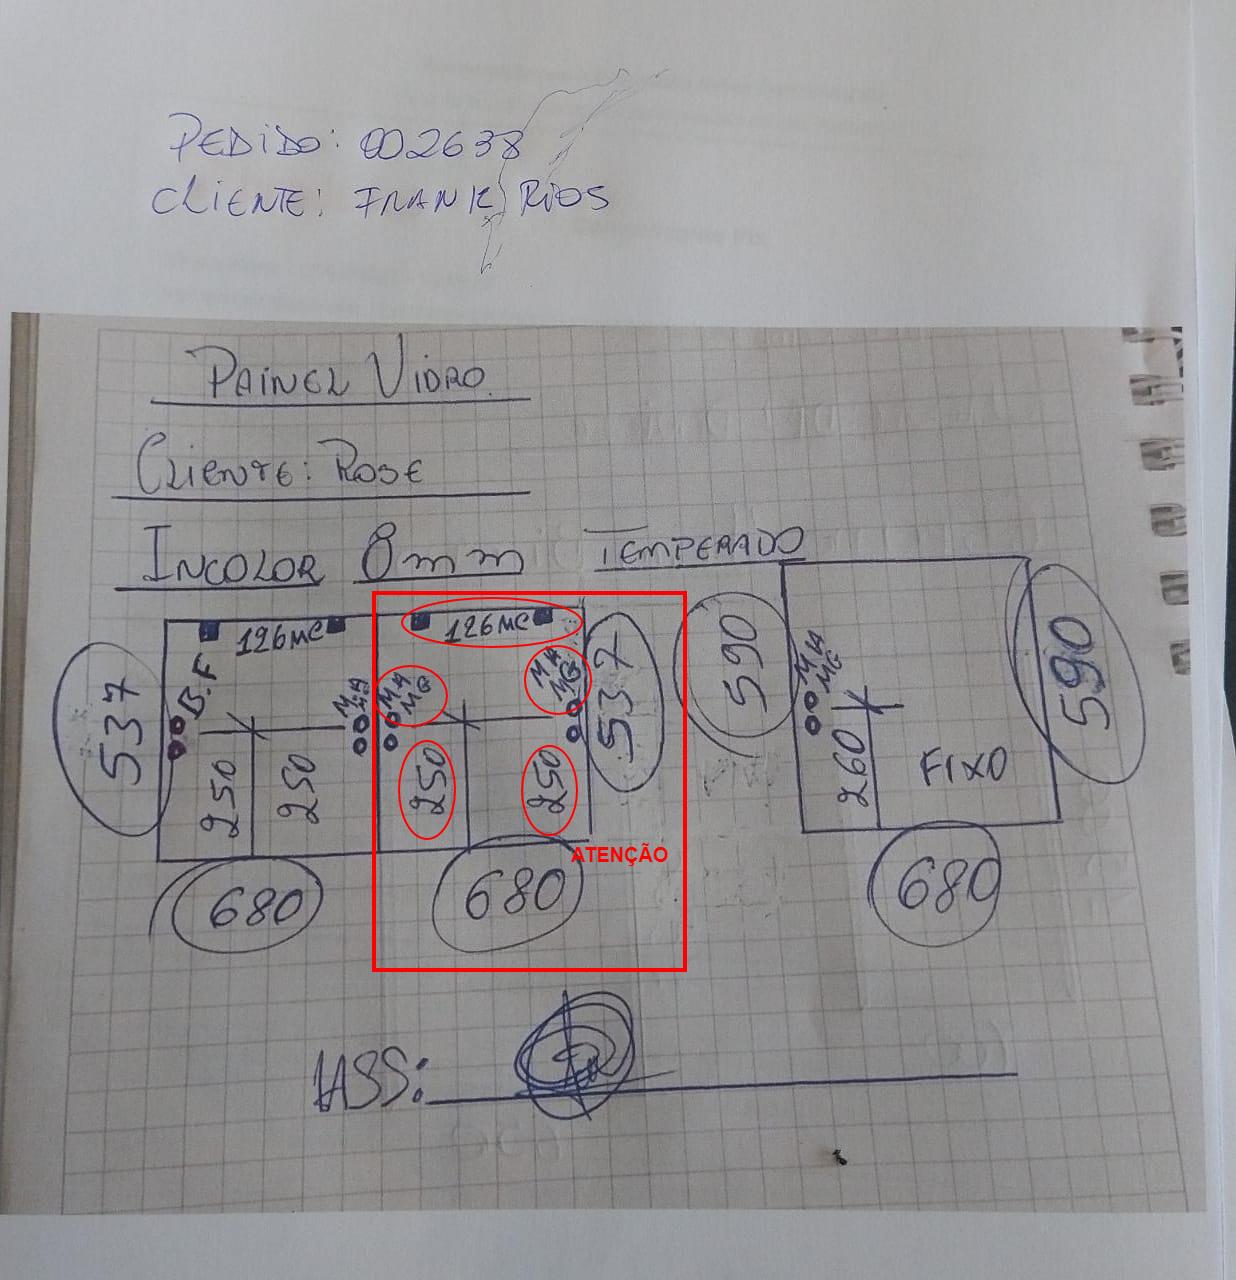 PEDIDO: 002638
CLIENTE: FRANK RIOS
PAINEL VIDRO
CLIENTE: ROSE
INCOLOR 8mm TEMPERADO
126MC
126MC
B.F
MA
MA
MG
MA
MG
MA
MG
537
537
590
590
250
250
250
250
260
FIXO
ATENÇÃO
680
680
680
ASS: